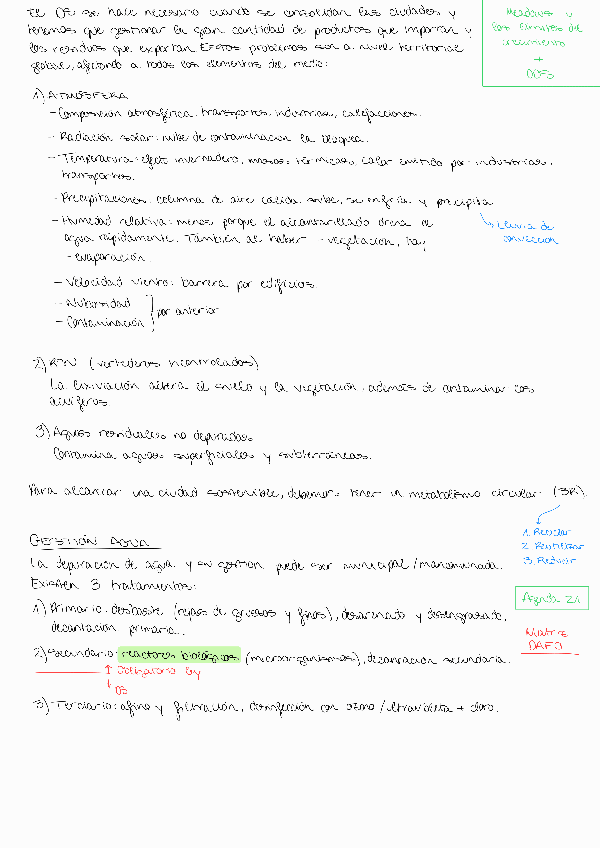 El DS se hace necesario cuando se consolidan las ciudades y
tenemos que gestionar la gran cantidad de productos que importan y
los residuos que exportan. Estos problemas son a nivel territorial
global, afectando a todos los elementos del medio:
Meadows y
los límites del
crecimiento
+
ODS
1) ATMÓSFERA
- Composición atmosférica: transportes, industrias, calefacciones.
- Radiación solar: nube de contaminación la bloquea.
- Temperatura: efecto invernadero, masas térmicas, calor emitido por industrias,
transportes.
- Precipitaciones: columna de aire cálida sube, se enfría y precipita
↳ Lluvia de
convección
- Humedad relativa: menos porque el alcantarillado drena el
agua rápidamente. También al haber - vegetación, hay
- evaporación
- Velocidad viento: barrera por edificios
- Nubosidad
- Contaminación
por anterior
2) RSU (vertederos incontrolados)
La lixiviación altera el suelo y la vegetación, además de contaminar los
acuíferos
3) Aguas residuales no depuradas
Contamina aguas superficiales y subterráneas.
Para alcanzar una ciudad sostenible, debemos tener un metabolismo circular (3R).
1. Reciclar
2. Reutilizar
3. Reducir
GESTIÓN AGUA
La depuración de agua y su gestión puede ser municipal/mancomunada.
Existen 3 tratamientos:
Agenda 21
1) Primario: desbaste (rejas de gruesos y finos), desarenado y desengrasado,
decantación primaria...
Matriz
DAFO
2) Secundario: reactores biológicos (microorganismos), decantación secundaria.
↑ Obligatorio by
↓ DS
3) Terciario: afino y filtración, desinfección con ozono/ultravioleta + cloro.